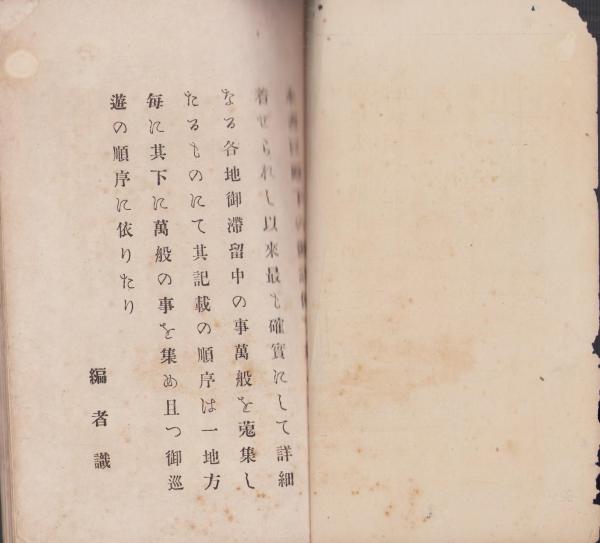 着せられし以來最も確實にして詳細
なる各地御滯留中の事萬般を蒐集し
たるものにて其記載の順序は一地方
每に其下に萬般の事を集め且つ御巡
遊の順序に依りたり
編者識